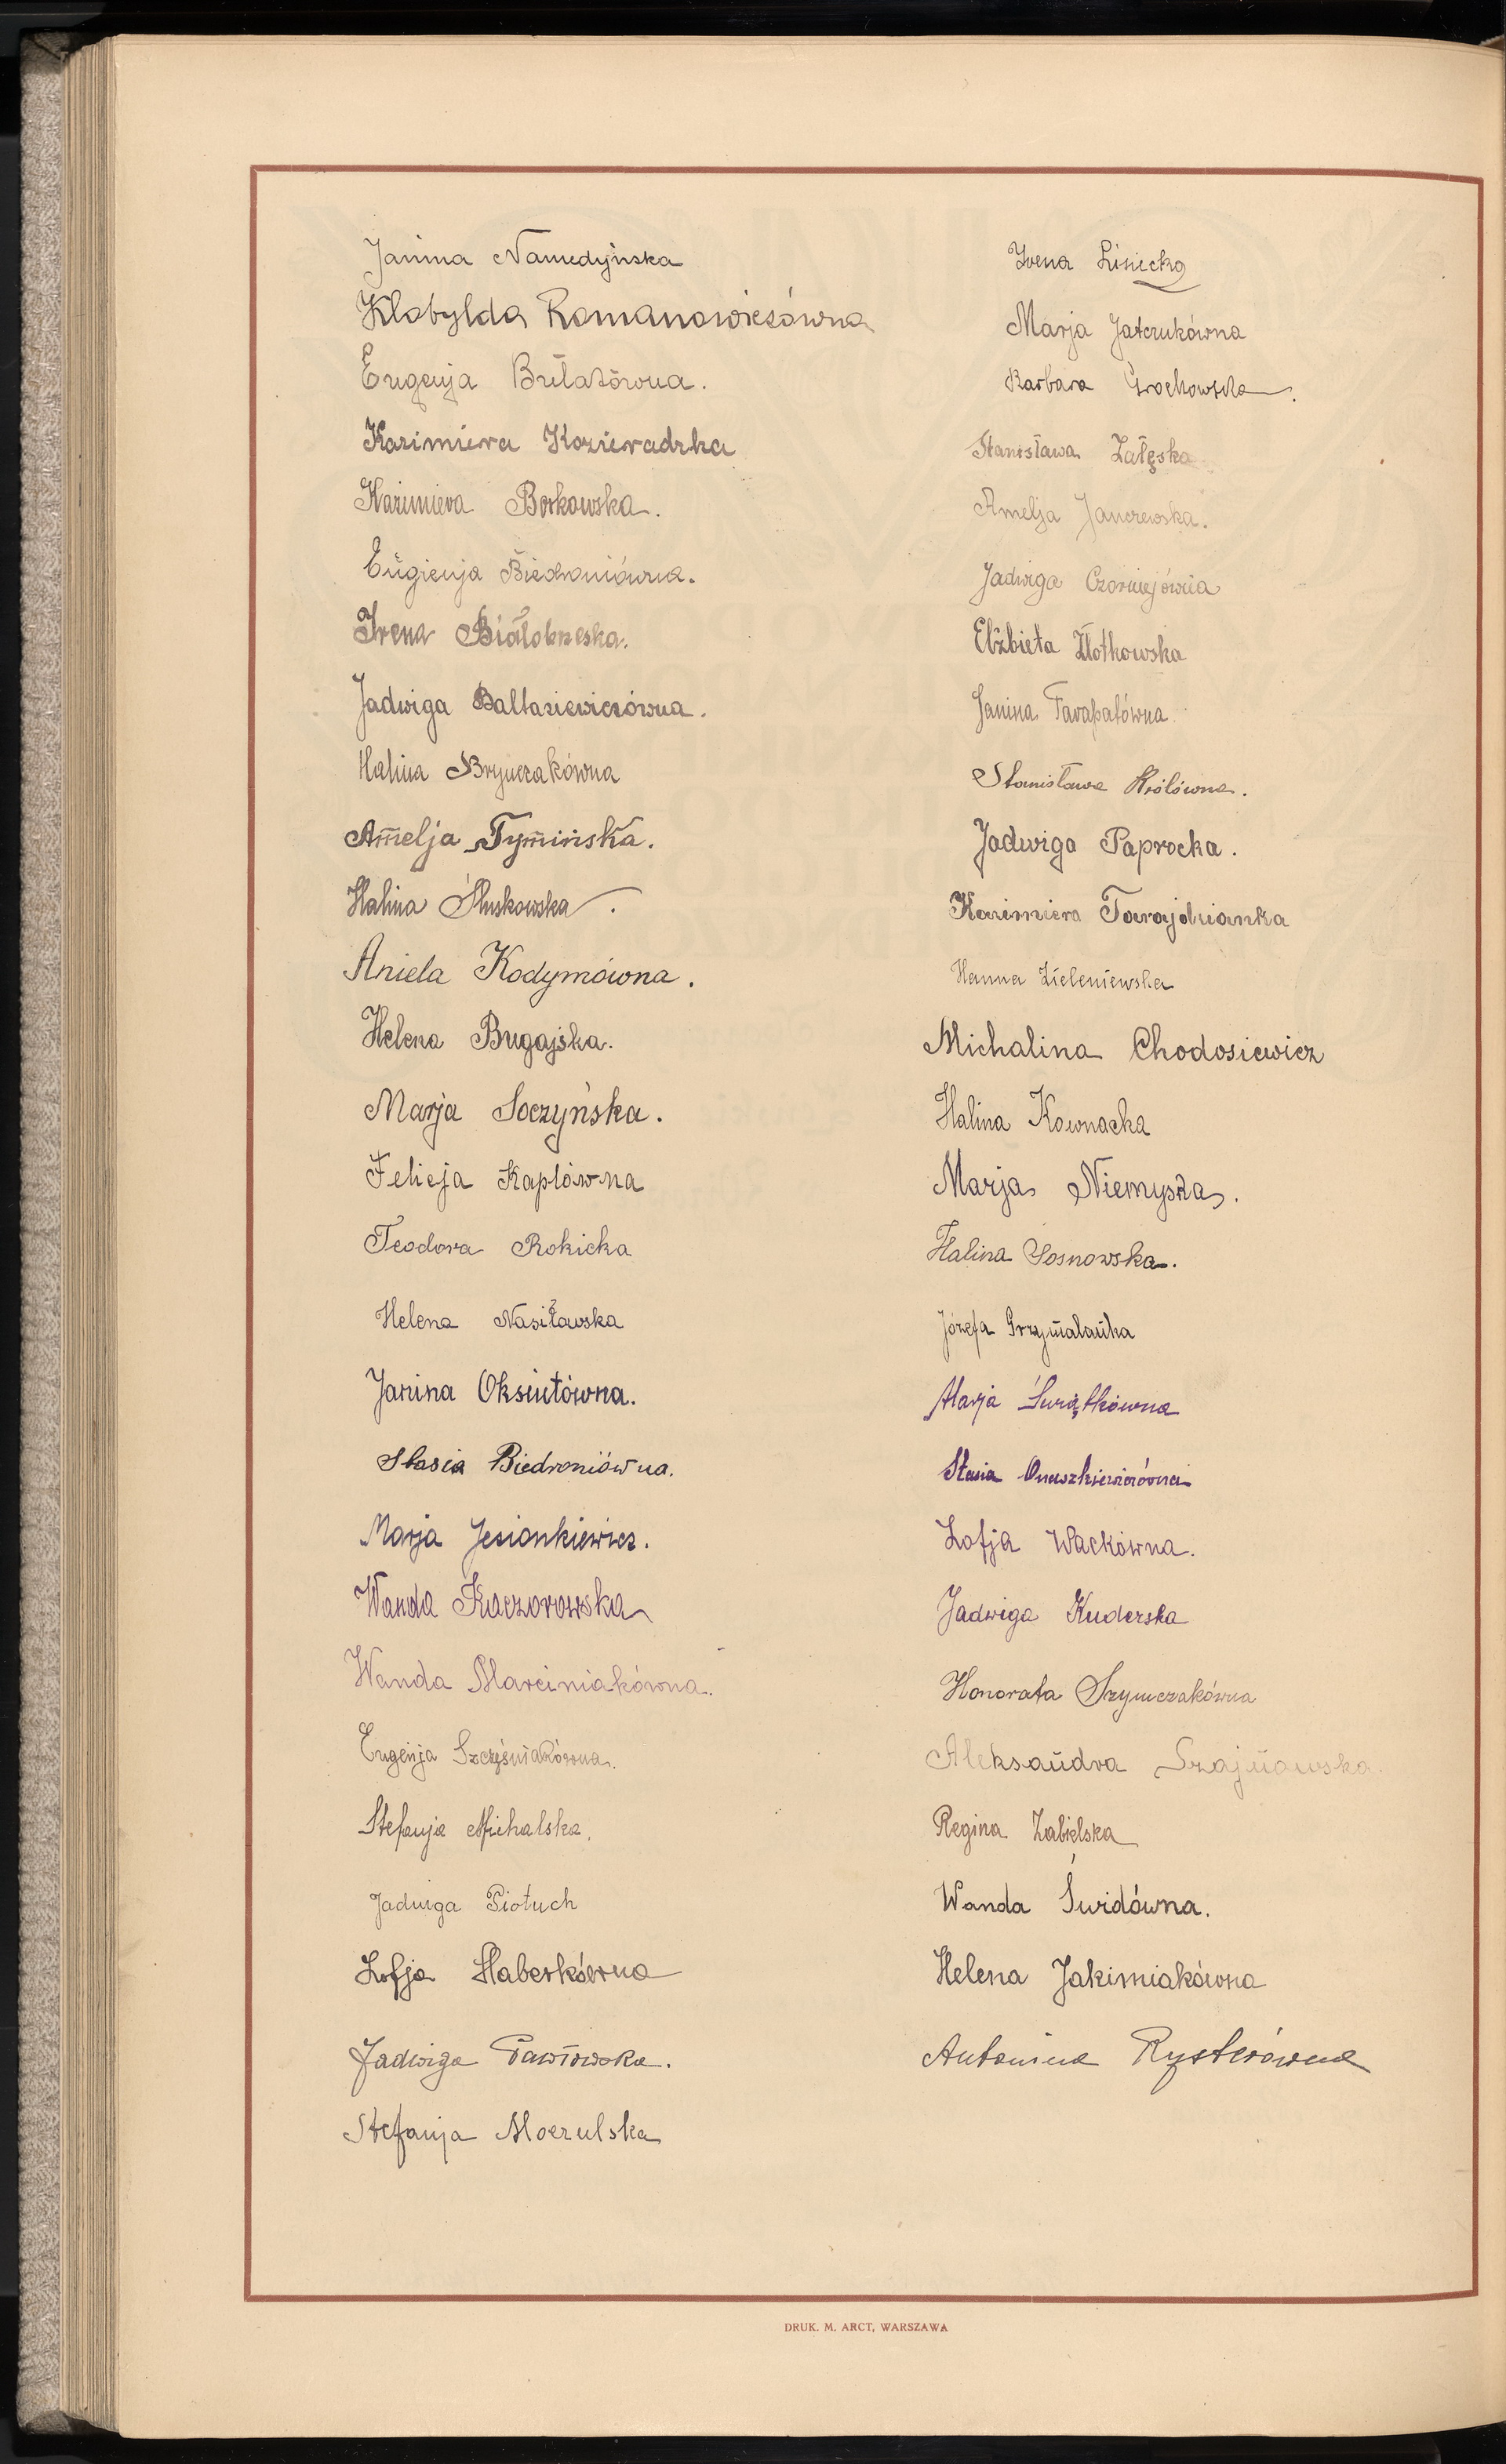 Janina Namedyńska
Klotylda Romanowiczówna
Eugenja Bułatówna.
Kazimiera Kozieradzka
Kazimiera Borkowska.
Eugienja Biedroniówna.
Irena Białobrzeska.
Jadwiga Baltaziewiczówna.
Halina Brynczakówna
Amelja Tymińska.
Halina Słuskowska.
Aniela Kodymówna.
Helena Bugajska.
Marja Soczyńska.
Felicja Kaplówna
Teodora Rokicka
Helena Nasiławska
Janina Oksiutówna.
Stasia Biedroniówna.
Marja Jesionkiewicz.
Wanda Kaczorowska
Wanda Marciniakówna.
Eugenja Szcześniakówna.
Stefanja Michalska.
Jadwiga Piotuch
Zofja Haberkówna
Jadwiga Pawłowska.
Stefanja Moczulska
Irena Lisicka
Marja Jatczukówna
Barbara Grochowska.
Stanisława Załęska
Amelja Janczewska.
Jadwiga Czorniejówna
Elżbieta Złotkowska
Janina Tarapatówna
Stanisława Królówna.
Jadwiga Paprocka.
Kazimiera Tarajdzianka
Hanna Zieleniewska
Michalina Chodosiewicz
Halina Kownacka
Marja Niemyska.
Halina Sosnowska.
Józefa Grzymalanka
Marja Świątkówna
Stasia Onuszkiewiczówna
Zofja Wackówna.
Jadwiga Kuderska
Honorata Szymczakówna
Aleksandra Szajnowska.
Regina Zabielska
Wanda Świdówna.
Helena Jakimiakówna
Antonina Rysterówna
DRUK. M. ARCT, WARSZAWA